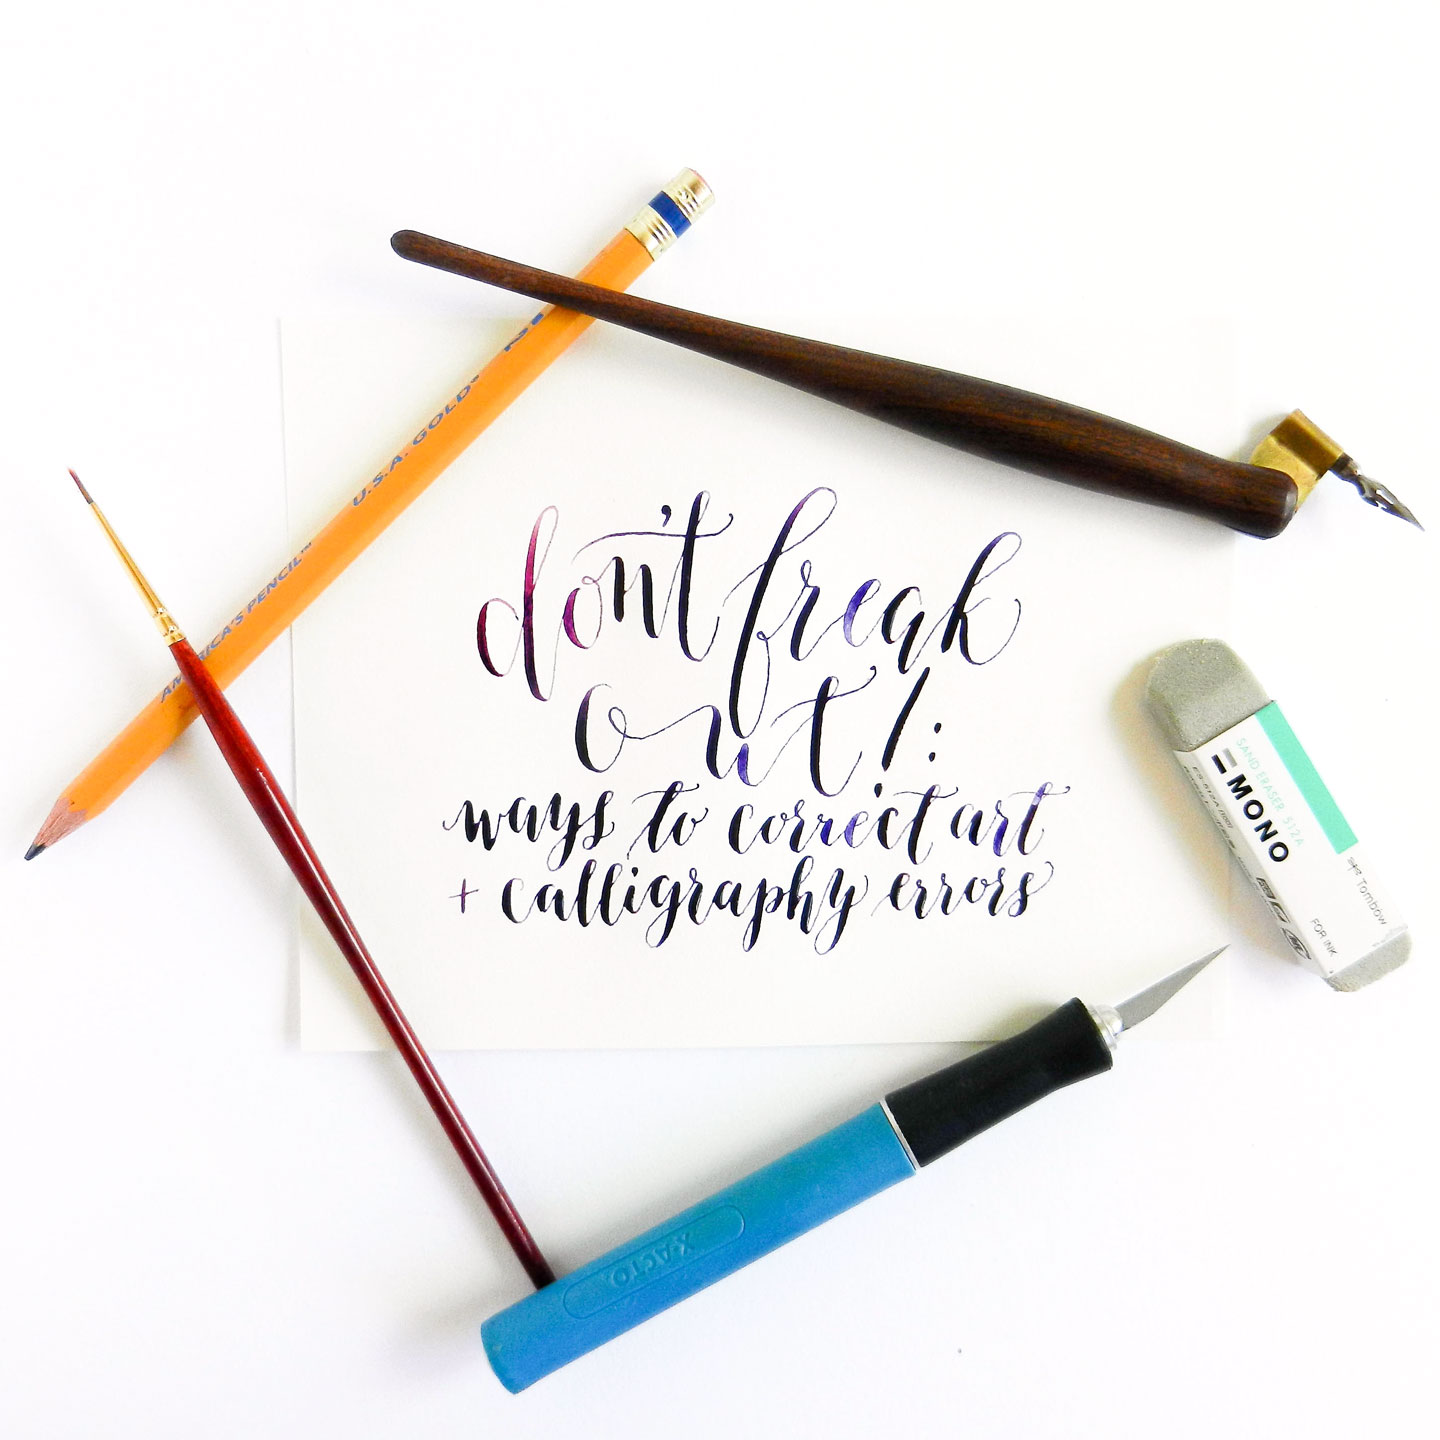 U.S.A. GOLD®
AMERICA'S PENCIL™
don't freak
out!:
ways to correct art
+ calligraphy errors
SAND ERASER 512A
MONO
Tombow
FOR INK
X-ACTO